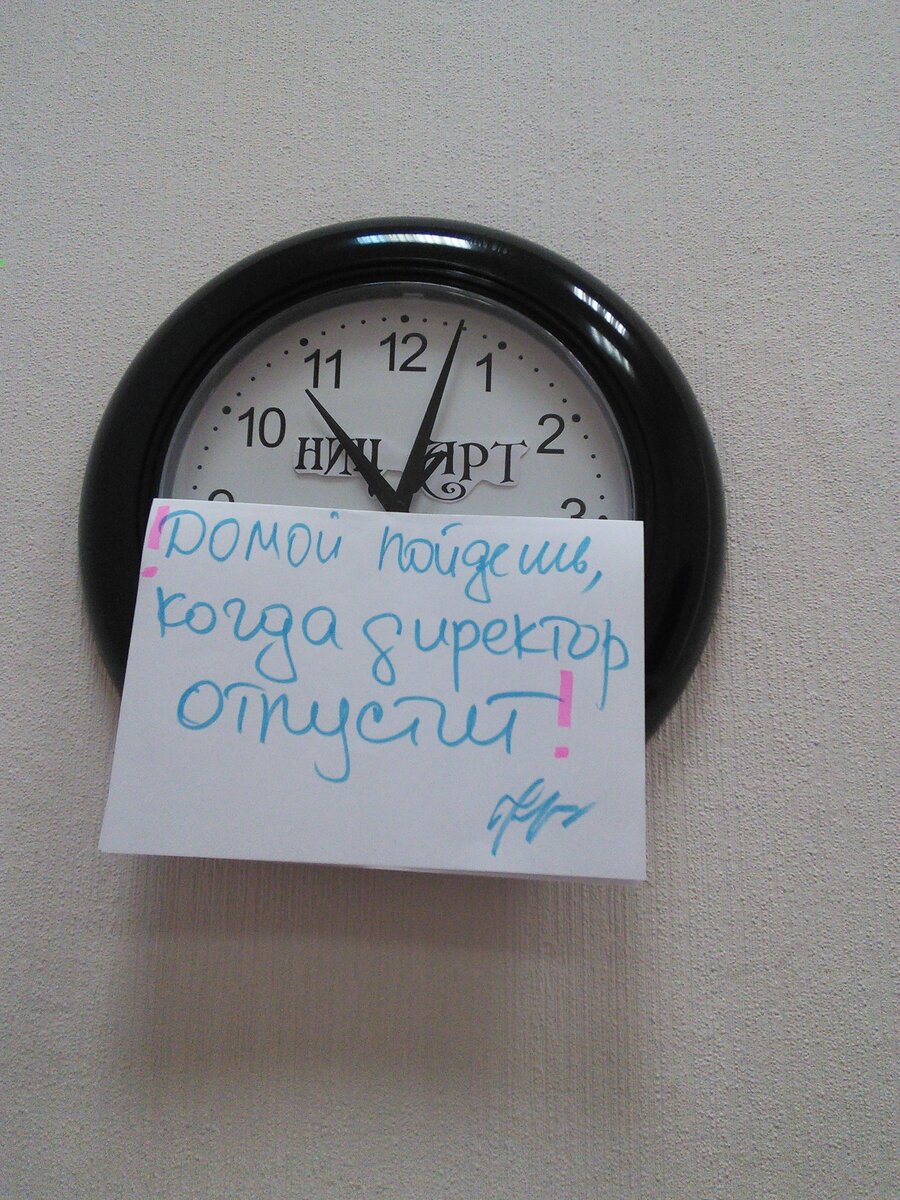 12
11
1
10
2
НИЦ АРТ
9
3
! Домой пойдешь,
когда директор
отпустит!